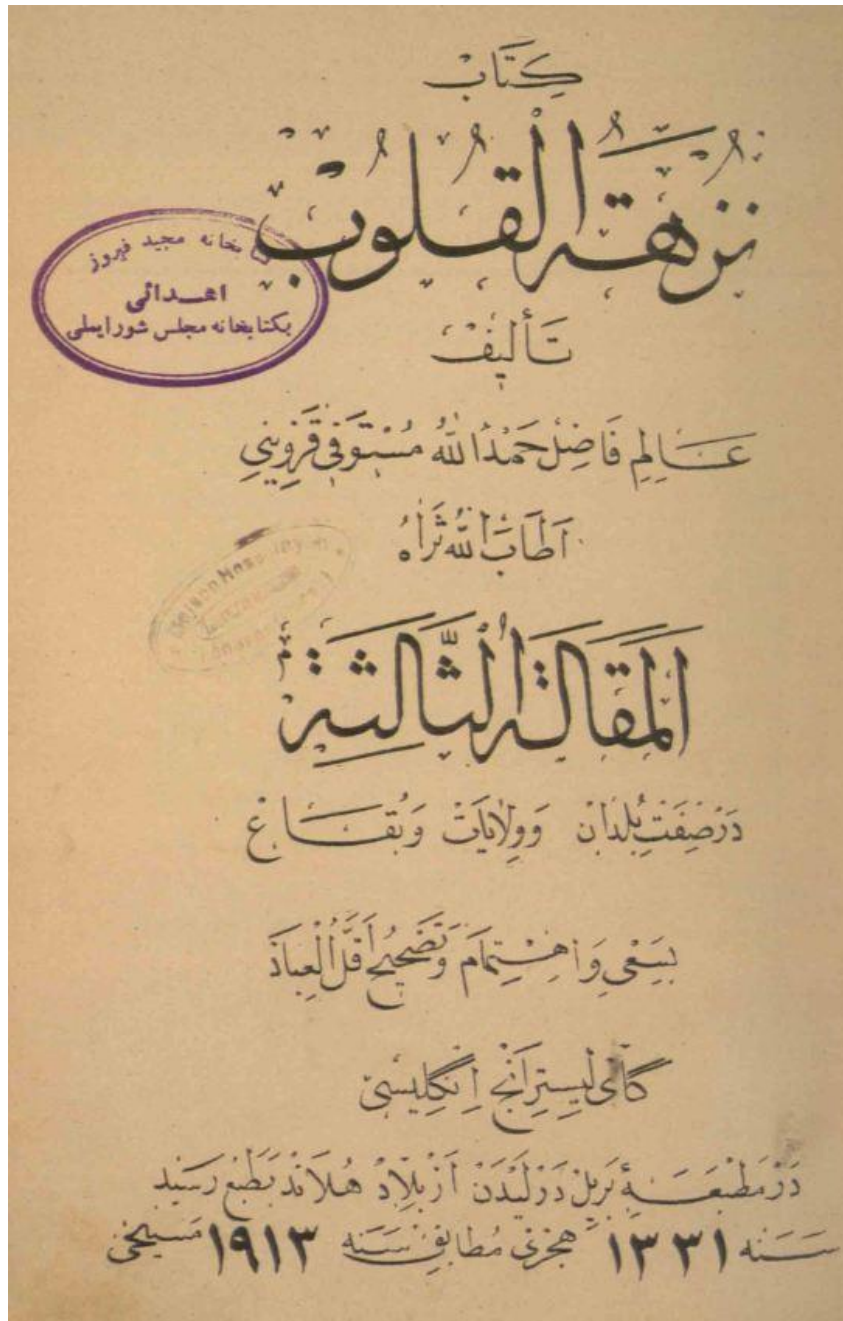 كِتَابْ
نُزْهَةُ الْقُلُوبْ
كتابخانه مجید فیروز
اهدائی
بکتابخانه مجلس شورایملی
تَأليفْ
عَالِمِ فَاضِلْ حَمْدُ اللهِ مُسْتَوْفِی قَزْوِینِی
اَطَابَ اللهُ ثَرَاهُ
اَلْمَقَالَةُ الثَّالِثَةُ
دَرْ صِفَتِ بُلْدَانْ وَوِلَايَاتْ وَبُقَاعْ
بِسَعْیِ وَاِهْتِمَامْ وَتَصْحِیحِ اَقَلُّ الْعِبَادْ
گَائی لِیسْتِرَانْجِ اِنْگِلِیسِی
دَرْ مَطْبَعَهٔ بَرِیلْ دَرْ لَیْدَنْ اَزْ بِلَادِ هُلَانْدْ بَطَبْعْ رَسِیدْ
سَنَه ۱۳۳۱ هِجْرِی مُطَابِقِ سَنَه ۱۹۱۳ مَسِیحِی